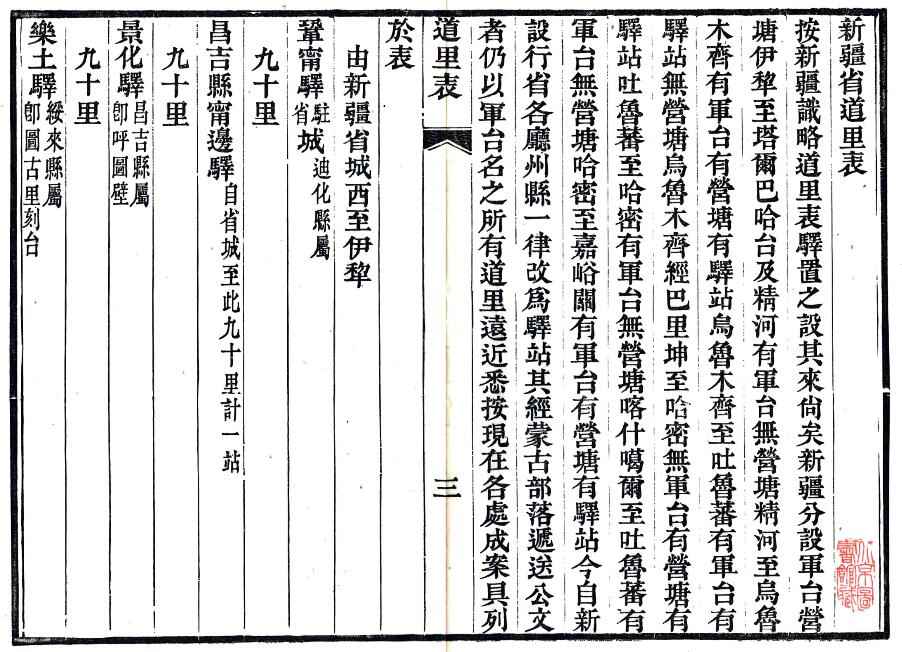 新疆省道里表
按新疆識略道里表驛置之設其來尙矣新疆分設軍台營
塘伊犂至塔爾巴哈台及精河有軍台無營塘精河至烏魯
木齊有軍台有營塘有驛站烏魯木齊至吐魯蕃有軍台有
驛站無營塘烏魯木齊經巴里坤至哈密無軍台有營塘有
驛站吐魯蕃至哈密有軍台無營塘喀什噶爾至吐魯蕃有
軍台無營塘哈密至嘉峪關有軍台有營塘有驛站今自新
設行省各廳州縣一律改爲驛站其經蒙古部落遞送公文
者仍以軍台名之所有道里遠近悉按現在各處成案具列
道里表
三
於表
由新疆省城西至伊犂
鞏甯驛駐省城迪化縣屬
九十里
昌吉縣甯邊驛自省城至此九十里計一站
九十里
景化驛昌吉縣屬卽呼圖壁
九十里
樂土驛綏來縣屬卽圖古里刻台